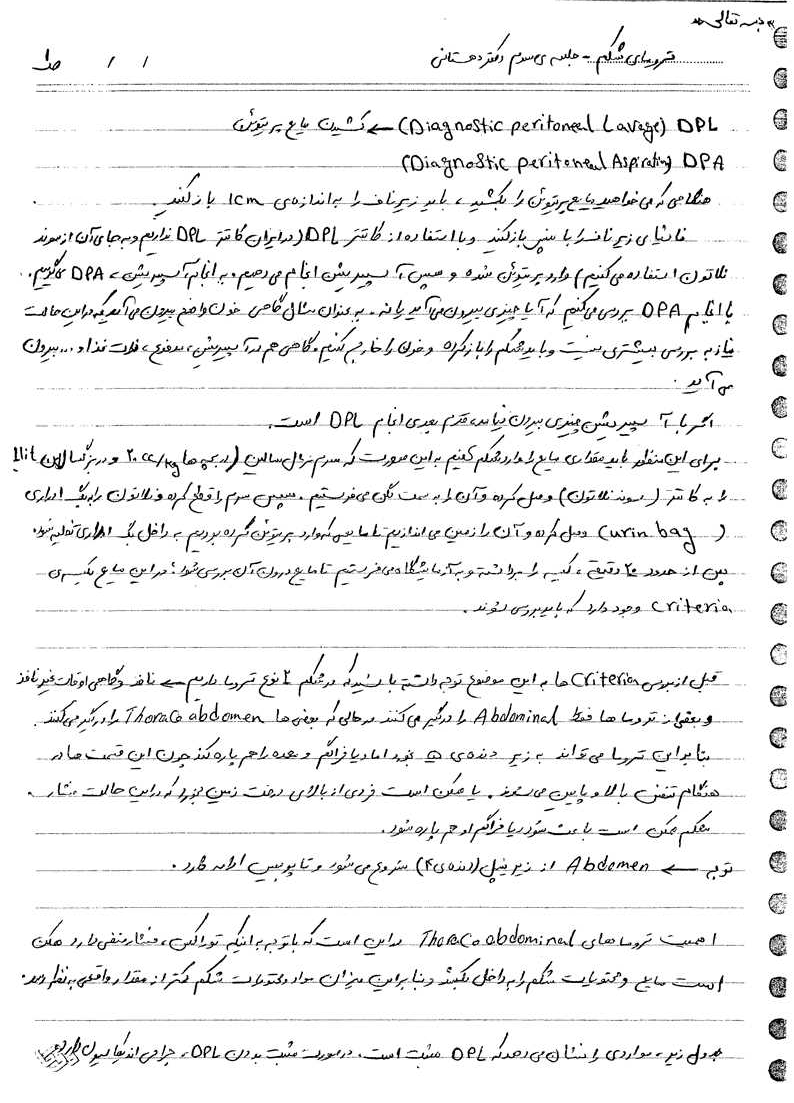 بسمه تعالی
تروماهای شکم - جلسه ی سوم دکتر دهستانی / / ص۱
DPL (Diagnostic peritoneal Lavage) ← کشیدن مایع پریتوئن
DPA (Diagnostic peritoneal Aspiration)
هنگامی که می خواهید مایع پریتوئن را بکشید، باید زیر ناف را به اندازه ی 1cm باز کنید.
فاشیای زیر ناف را با بازکنید و با استفاده از کاتتر DPL (در ایران کاتتر DPL نداریم و به جای آن از سوند
نلاتون استفاده می کنیم) وارد پریتوئن شده و سپس آسپیریشن انجام می دهیم، به انجام آسپیریشن، DPA می گوییم.
با انجام DPA بررسی می کنیم که آیا چیزی بیرون می آید یا نه. به عنوان مثال گاهی خون واضح بیرون می آید که در این حالت
نیاز به بررسی بیشتری نیست و باید شکم را باز کرده و خون را خارج کنیم. گاهی هم در آسپیریشن، مدفوع، ذرات غذا و... بیرون
می آید.
اگر با آسپیریشن چیزی بیرون نیامد، قدم بعدی انجام DPL است.
برای این منظور باید مقداری مایع را وارد شکم کنیم به این صورت که سرم نرمال سالین (در بچه ها 20 cc/kg و در بزرگسالان 1lit)
را به کاتتر (سوند نلاتون) وصل کرده و آن را به سمت لگن می فرستیم. سپس سرم را قطع کرده و نلاتون را به بگ ادراری
(urin bag) وصل کرده و آن را زمین می اندازیم تا مایعی که وارد پریتوئن کرده بودیم به داخل بگ ادراری تخلیه شود.
پس از حدود ۲۰ دقیقه، کیسه را برداشته و به آزمایشگاه می فرستیم تا مایع درون آن بررسی شود؛ در این مایع یکسری
criteria وجود دارد که باید بررسی شوند.
قبل از بررسی Criteria ها به این موضوع توجه داشته باشید که در شکم ۲ نوع تروما داریم ← نافذ و گاهی اوقات غیر نافذ
و بعضی از تروماها فقط Abdominal را درگیر می کنند در حالی که بعضی ها Thoraco abdomen را درگیر می کنند.
بنابراین تروما می تواند به زیر دنده ی ۵ بخورد اما دیافراگم و معده را هم پاره کند چون این قسمت ها در
هنگام تنفس بالا و پایین می شوند. یا ممکن است فردی از بالای درخت زمین بخورد که در این حالت فشار
شکم ممکن است باعث شود دیافراگم او هم پاره شود.
توجه ← Abdomen از زیر نیپل (دنده ی ۴) شروع می شود و تا پوبیس ادامه دارد.
اهمیت تروماهای Thoraco abdominal در این است که با توجه به اینکه توراکس، فشار منفی دارد ممکن
است مایع و محتویات شکم را به داخل بکشد و بنابراین میزان مواد و محتویات شکم کمتر از مقدار واقعی به نظر برسد.
جدول زیر، مواردی را نشان می دهد که DPL مثبت است. در صورت مثبت بودن DPL، جراحی اندیکاسیون دارد